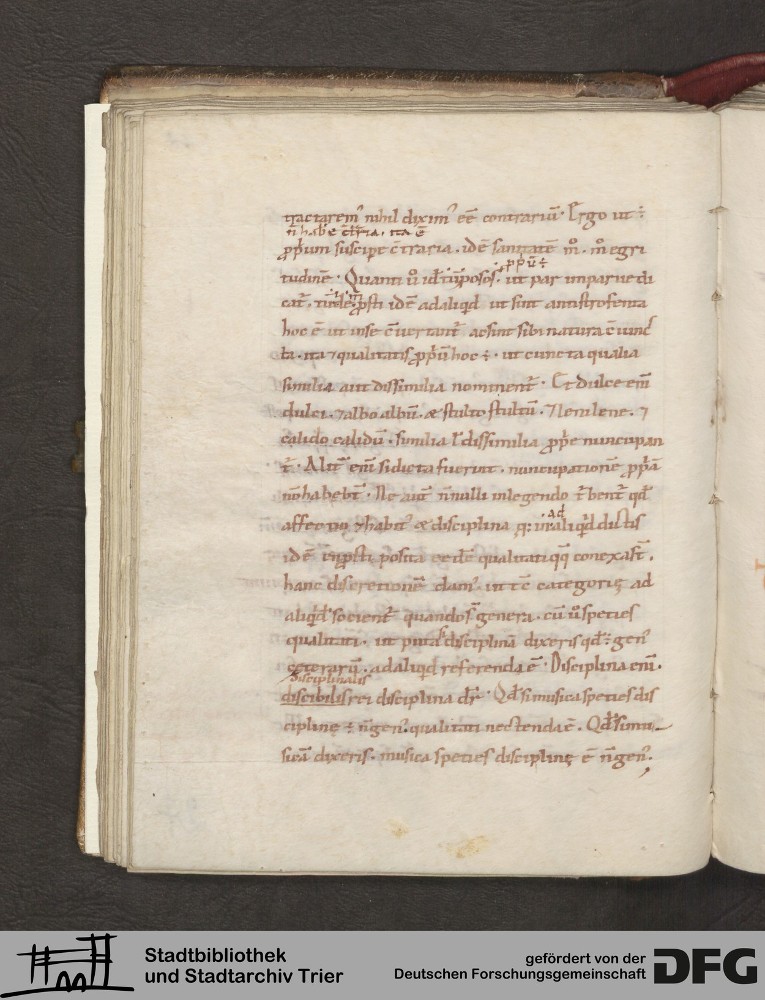 tractarem᷒ nihil dixim᷒ eē contrariū· Ergo ut
n̄ habe c̄trr̄ia, ita ē
ꝓpium suscipe c̄traria· idē sanitatē egri
tudinē· Quanti ut par inparue di
cat̄· idē ad aliqd ut sint antistrofenta
hoc ē ut inse c̄uertant̄ ac sint sibi natura c̄iunc
ta· ita ⁊ qualitatis hoc · ut cuncta qualia
similia aut dissimilia nominent̄· Et dulce em̄
dulci· ⁊ albo albū· & stulto stultū· ⁊ leni lene· ⁊
calido calidū· similia ł dissimilia ꝓpe nuncupan
t̄· Alit̄ em̄ si dicta fuerint· nuncupationē
n̄ habebt̄· Ne aut̄ n̄nulli in legendo qd
ad
affectio ⁊ habit᷒ & disciplina q: aliqd dictis
idē posita qualitati conexast̄·
hanc discretionē dam᷒· ut tē categorię ad
aliqd socient̄ quando genera· cū ů species
qualitati· ut puta disciplinā dixeris qd gen᷒
ceterarū· ad aliqd referenda ē· Disciplina em̄·
disciplinalis
discibilis rei disciplina dr̄· Qd si musica species dis
ciplinę n̄ gen᷒· qualitati nectenda ē· Qd si mu
sicā dixeris· musica species disciplinę ē n̄ gen᷒·
Stadtbibliothek
und Stadtarchiv Trier
gefördert von der
Deutschen Forschungsgemeinschaft
DFG